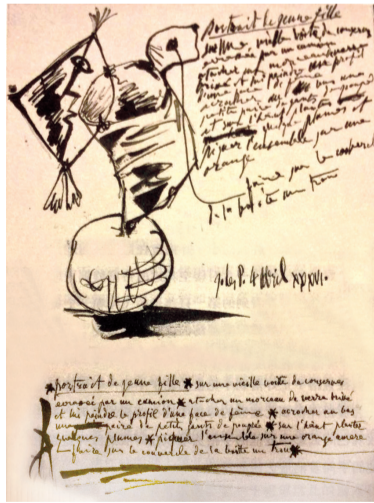 portrait de jeune fille
sur une vieille boite de conserves
écrasée par un camion
attacher un morceau de verre
et lui peindre un profil
d'une face de femme
accrocher au bas une
petite paire de gants de poupée
quelques plumes et
piquer l'ensemble sur une
orange
faire sur le couvercle
de la boite un trou
4 Avril XXXVI.
portrait de jeune fille sur une vieille boite de conserves
écrasée par un camion attacher un morceau de verre brisé
et lui peindre le profil d'une face de femme accrocher au bas
une paire de petits gants de poupée sur l'éant planter
quelques plumes piquer l'ensemble sur une orange amère
faire sur le couvercle de la boite un trou